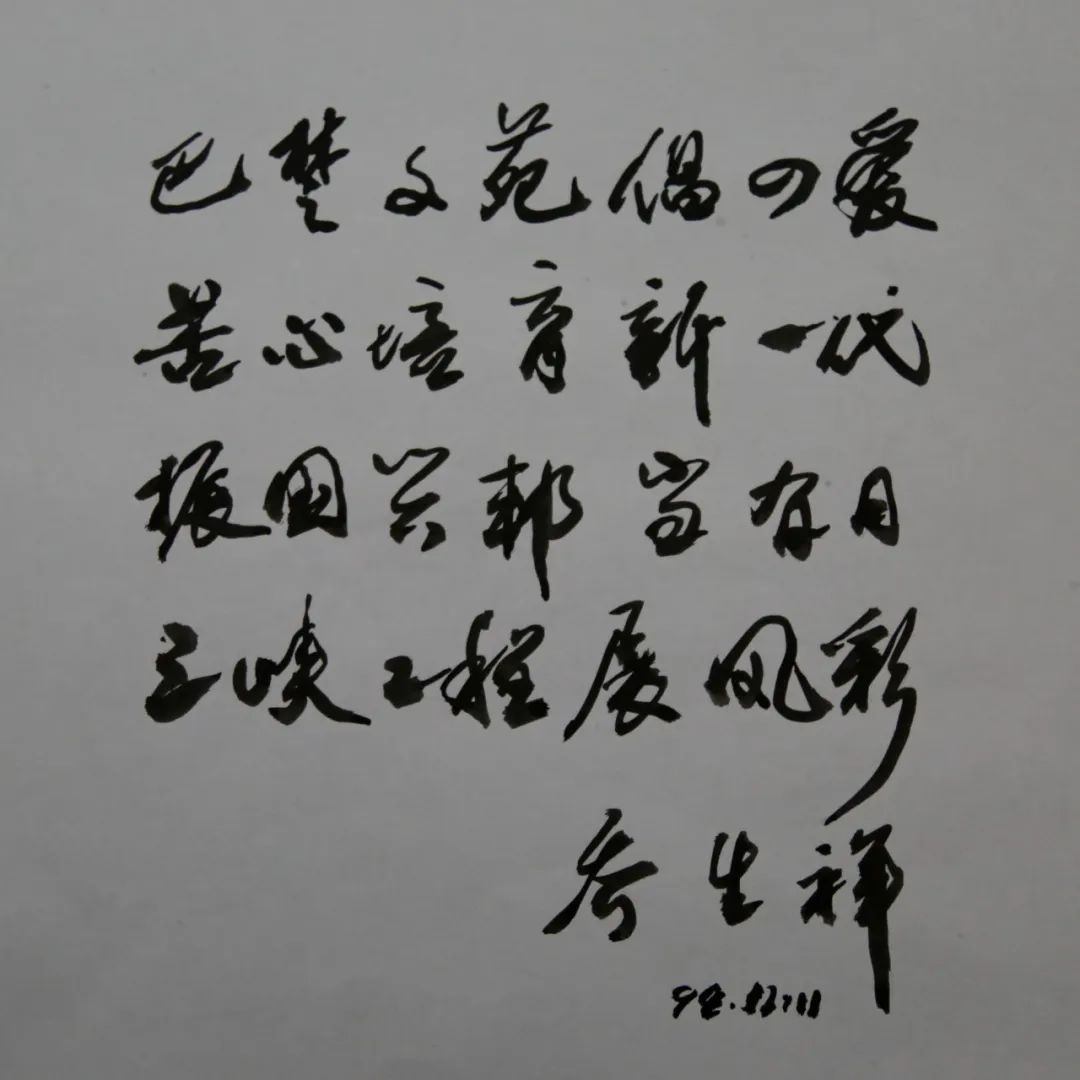 巴楚文苑可爱
苦心培育新一代
振国兴邦当有日
三峡工程展风彩
乔生祥